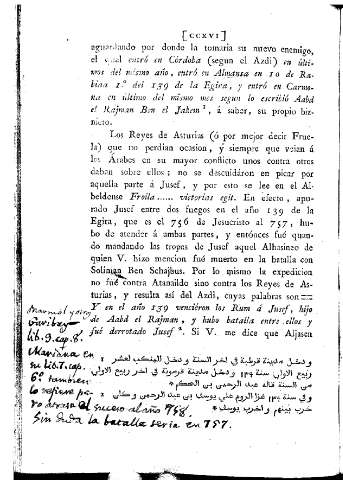 [ CCXVI ]
aguardando por donde la tomaria su nuevo enemigo,
el cual entró en Córdoba (segun el Azdi) en últi-
mos del mismo año, entró en Almansa en 10 de Ra-
biaa 1.º del 139 de la Egira, y entró en Carmo-
na en último del mismo mes segun lo escribió Aabd
el Rajman Ben el Jahem ¹, á saber, su propio biz-
nieto.
Los Reyes de Asturias (ó por mejor decir Frue-
la) que no perdian ocasion, y siempre que veian á
los Árabes en su mayor conflicto unos contra otros
daban sobre ellos; no se descuidáron en picar por
aquella parte á Jusef, y por esto se lee en el Al-
beldense Froila...... victorias egit. En efecto, apu-
rado Jusef entre dos fuegos en el año 139 de la
Egira, que es el 756 de Jesucristo al 757, hu-
bo de atender á ambas partes, y entónces fué quan-
do mandando las tropas de Jusef aquel Alhasineo de
quien V. hizo mencion fué muerto en la batalla con
Soliman Ben Schajbus. Por lo mismo la expedicion
no fué contra Atanaildo sino contra los Reyes de As-
turias, y resulta así del Azdi, cuyas palabras son
Y en el año 139 venciéron los Rum á Jusef, hijo
de Aabd el Rajman, y hubo batalla entre ellos y
fué derrotado Jusef ². Si V. me dice que Aljasen
Garibay
lib. 9. cap. 8.
Mariana en
su lib. 7. cap.
6.º tambien
lo refiere pe-
ro atrasa el suceso al año 758.
Sin duda la batalla sería en 757.